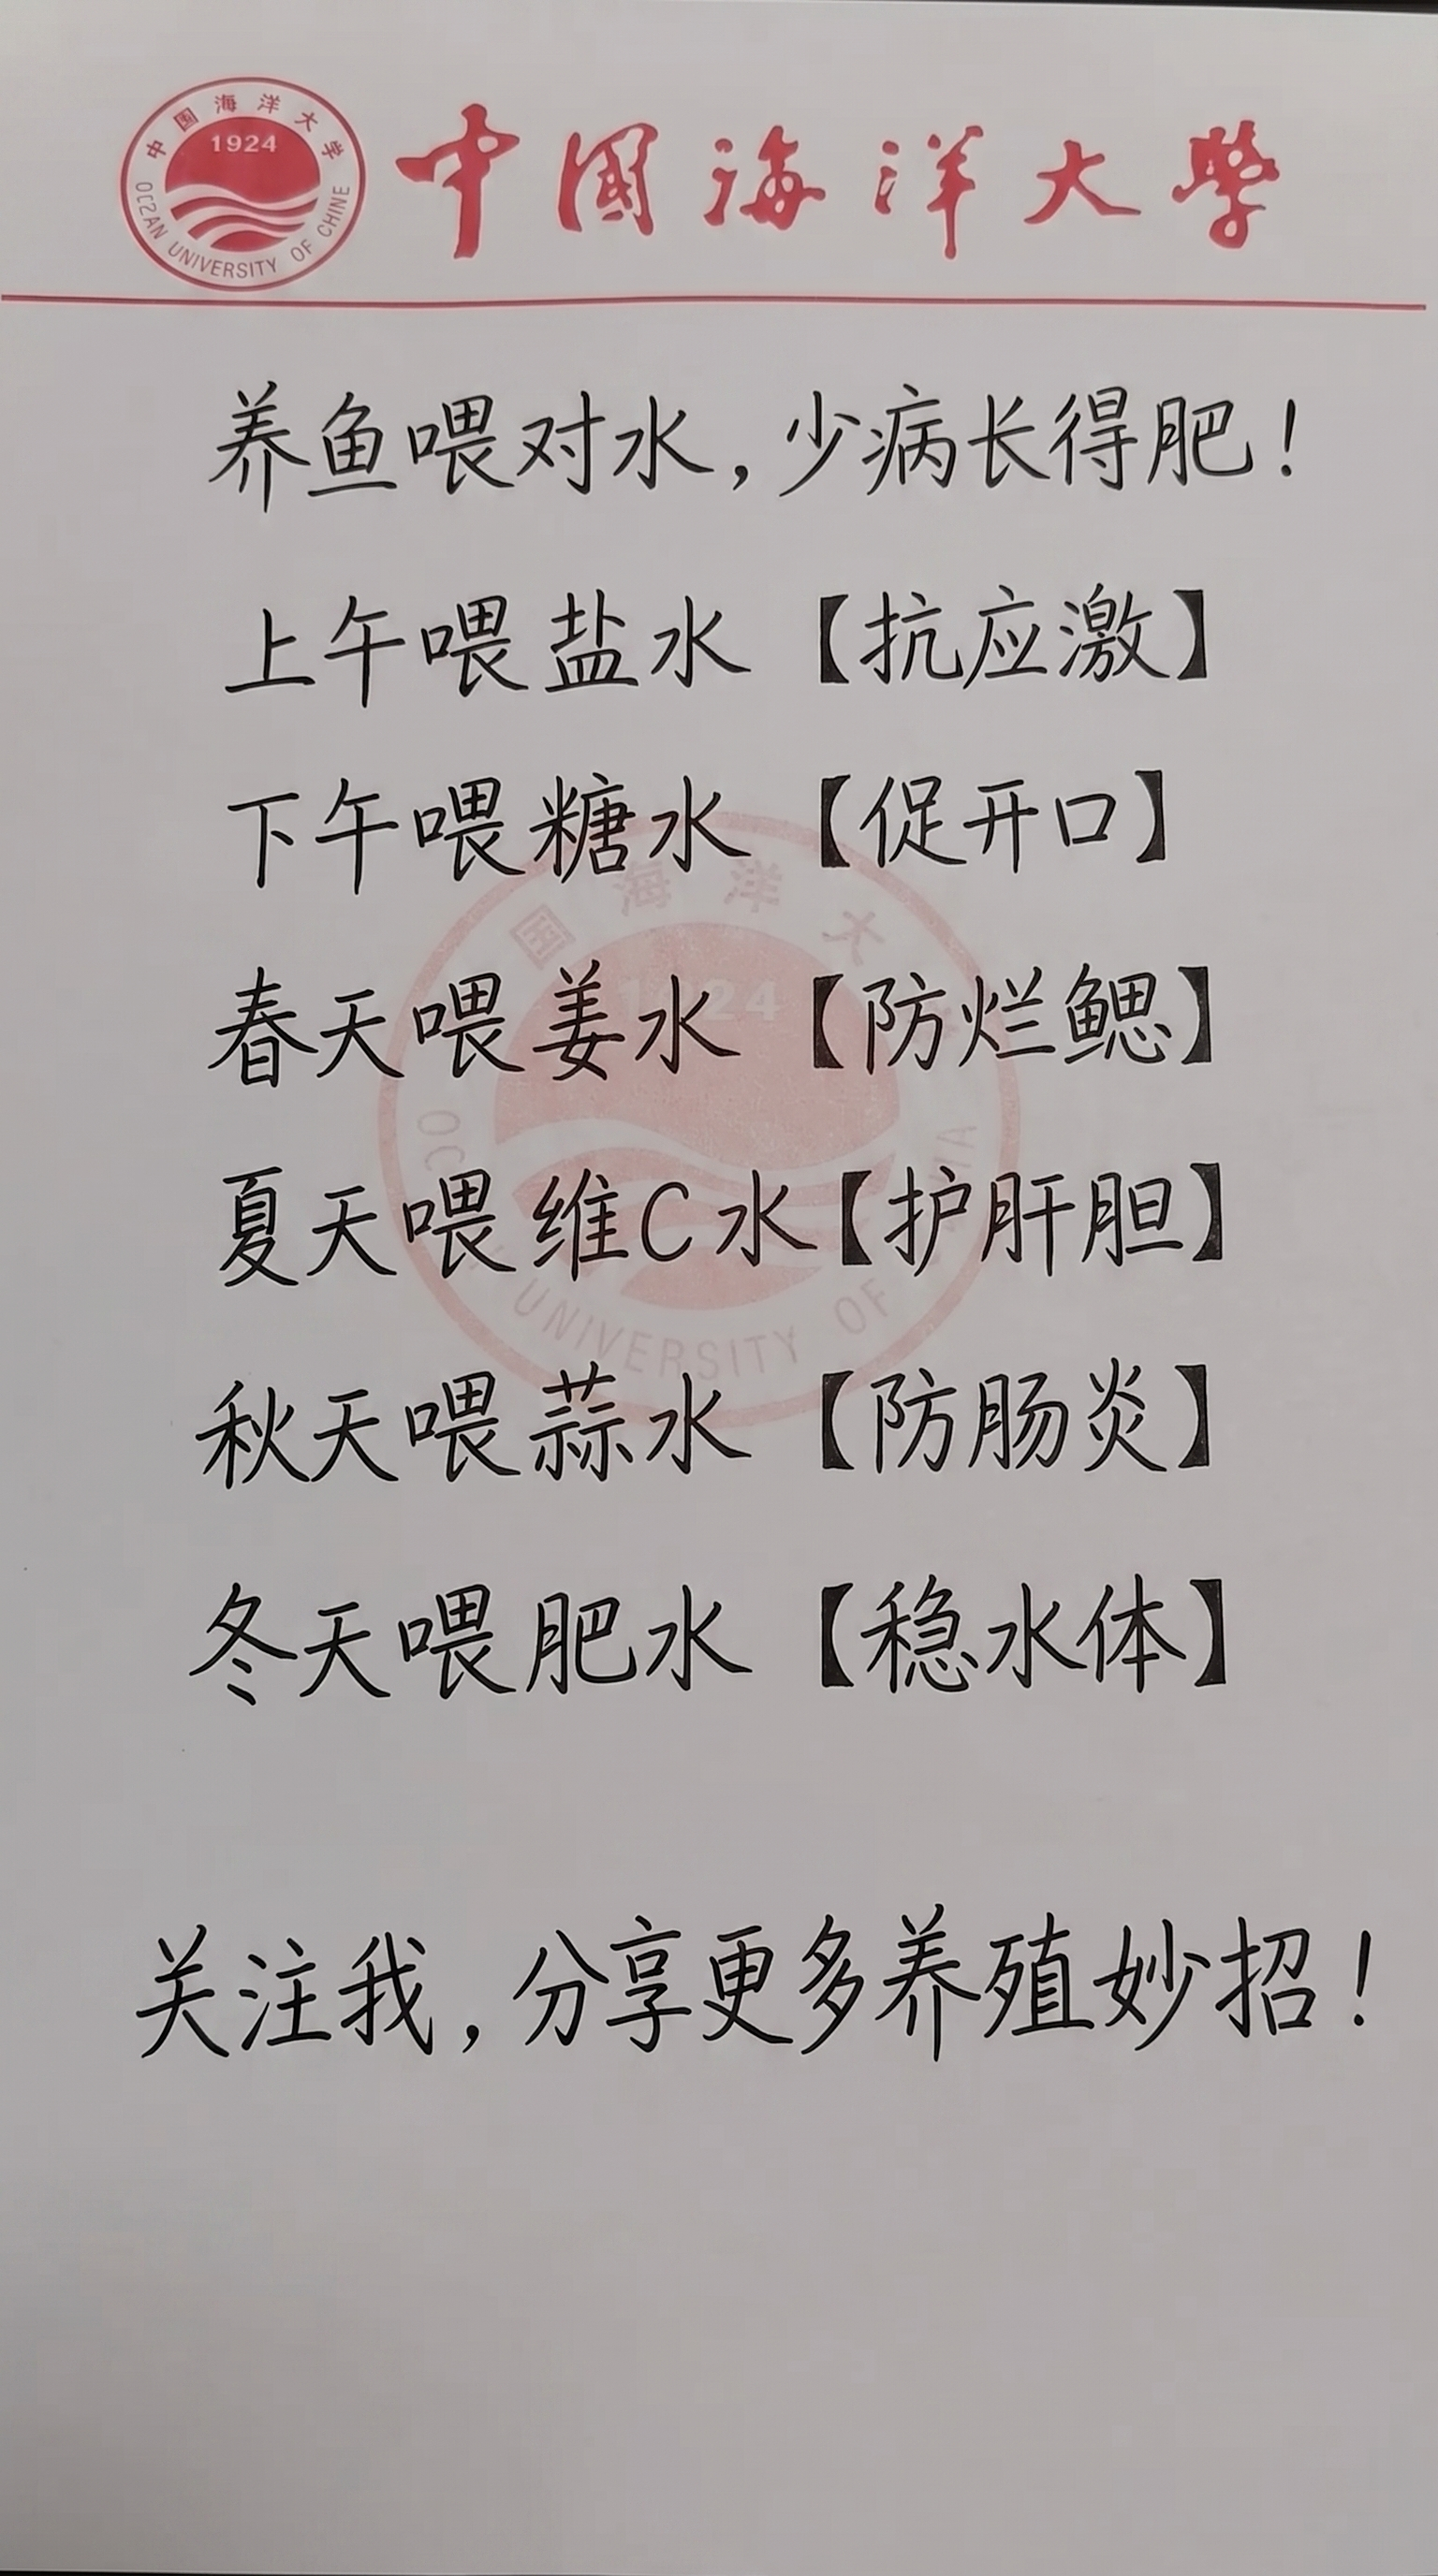 中国海洋大学
1924
OCZAN UNIVERSITY OF CHINE
中國海洋大學
养鱼喂对水，少病长得肥！
上午喂盐水【抗应激】
下午喂糖水【促开口】
春天喂姜水【防烂鳃】
夏天喂维C水【护肝胆】
秋天喂蒜水【防肠炎】
冬天喂肥水【稳水体】
国海洋大
1924
UNIVERSITY OF
关注我，分享更多养殖妙招！